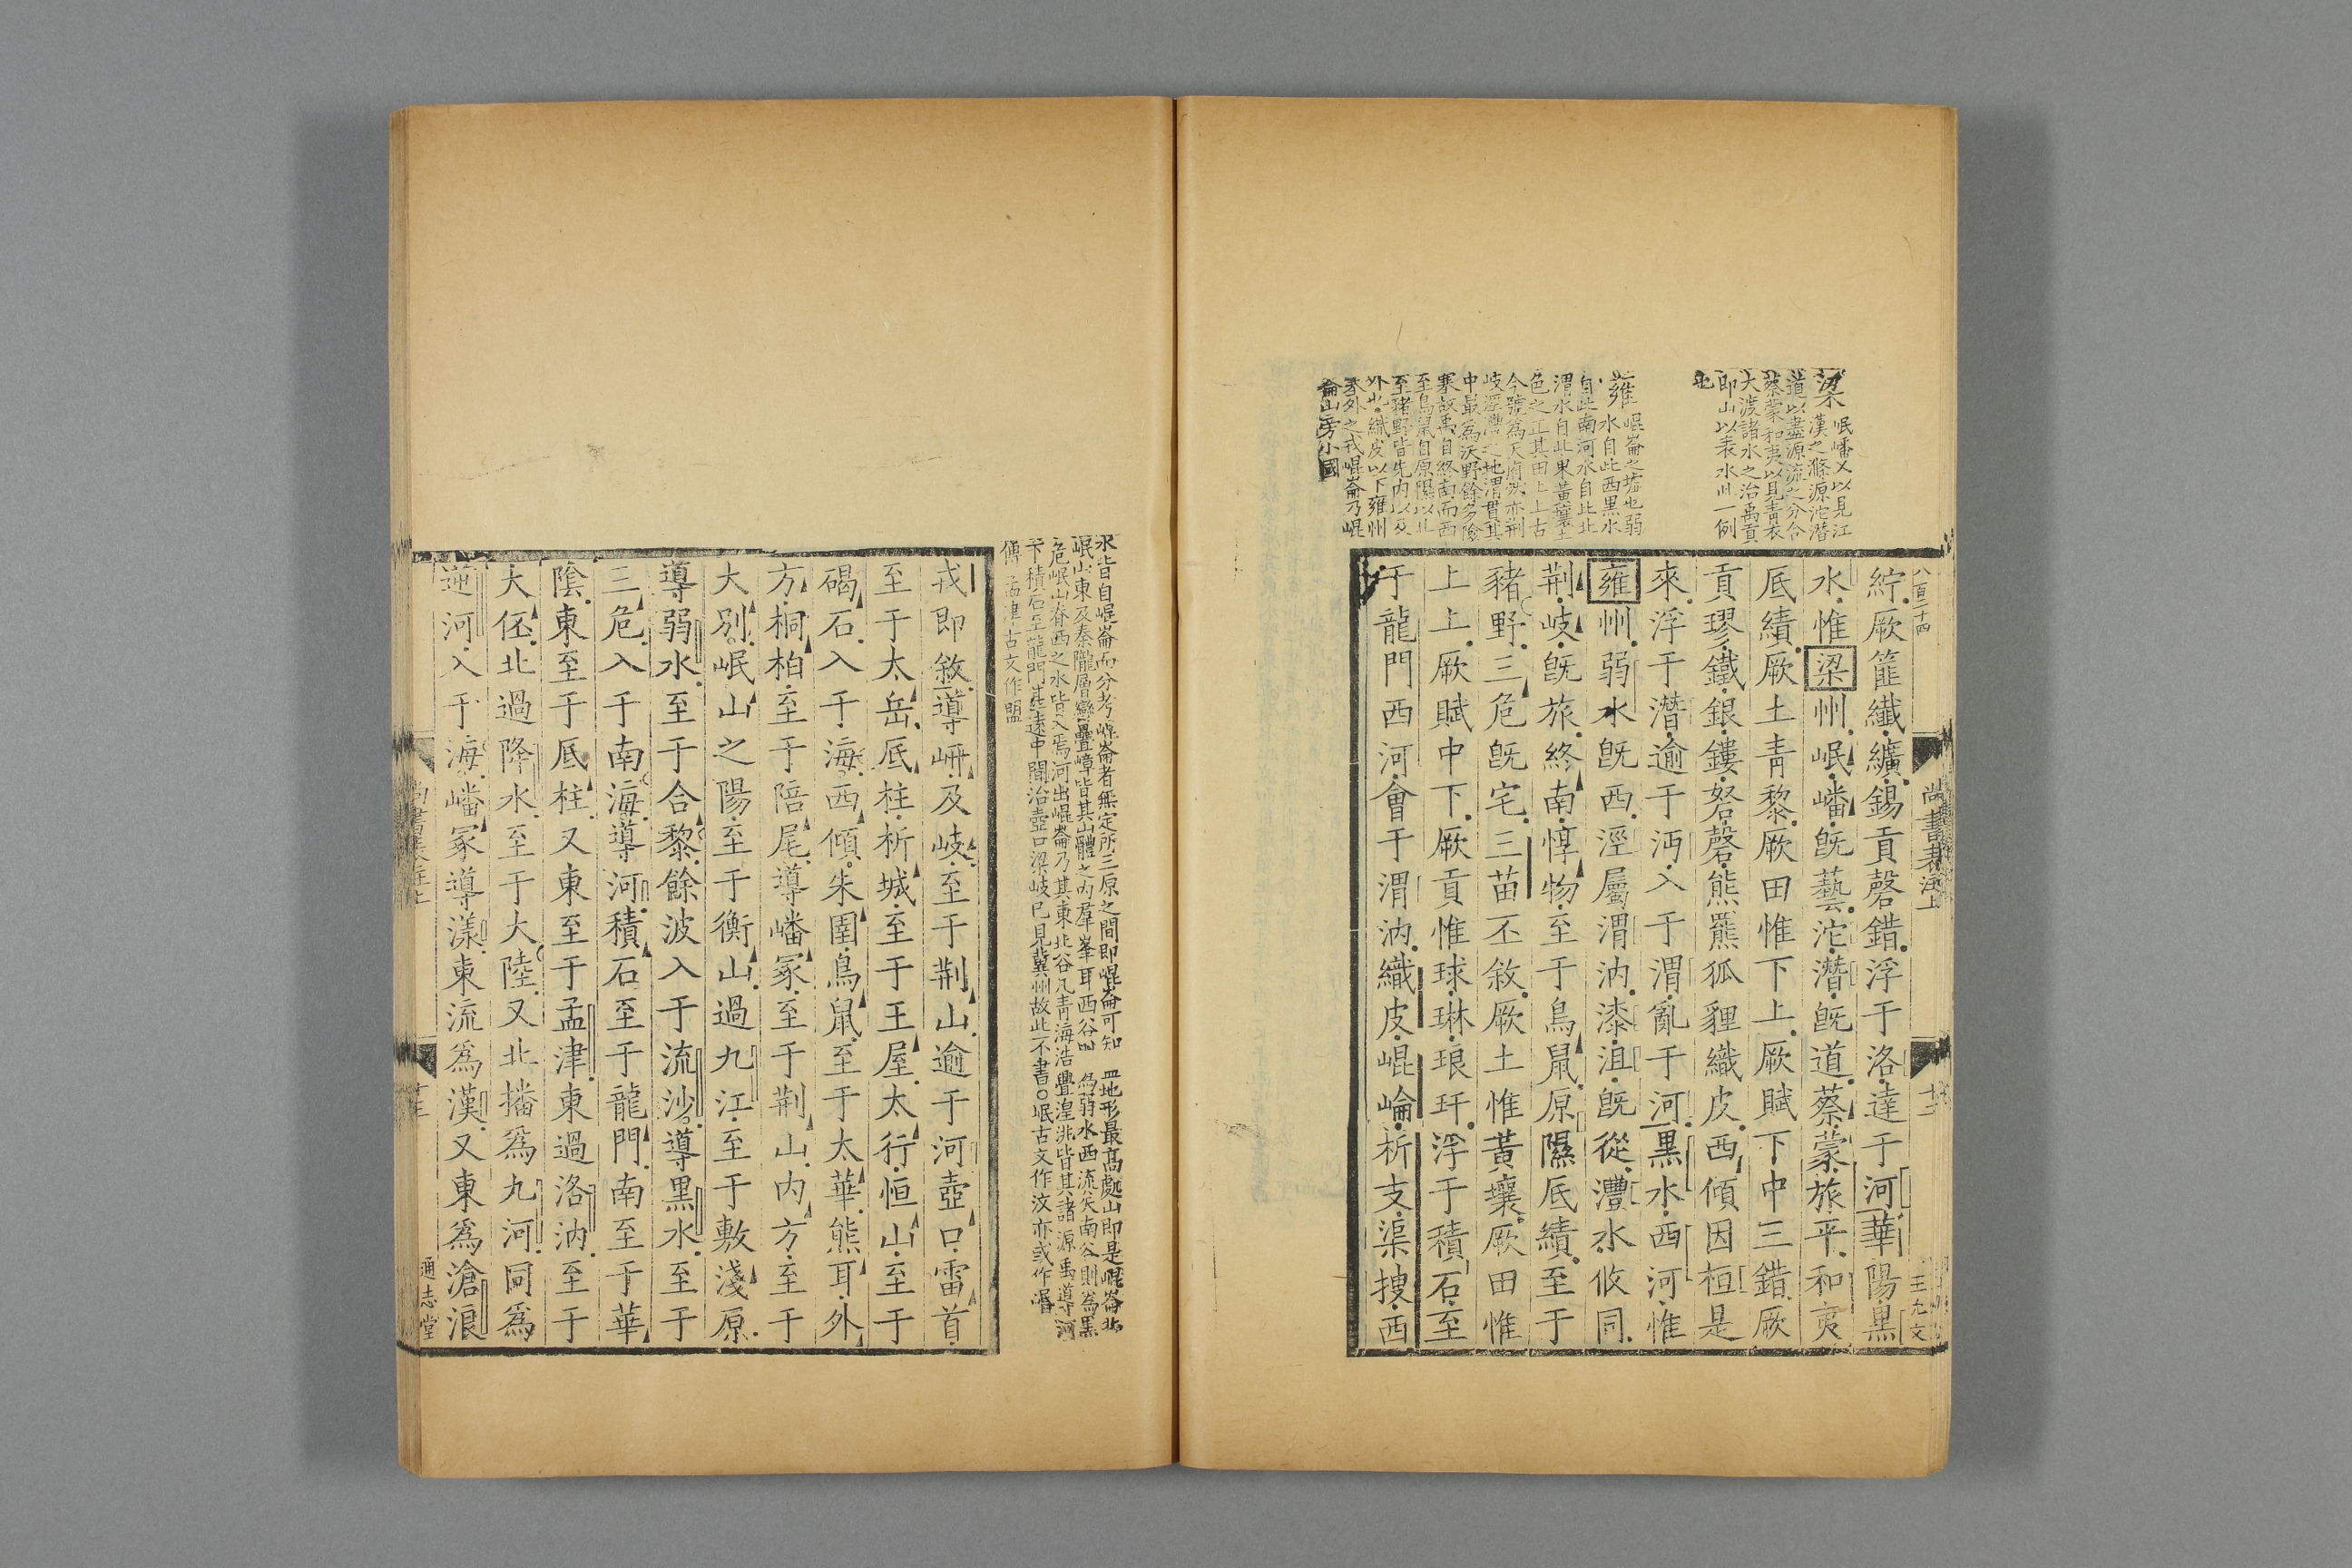 八百二十四
尚書表注上
十二
王九文
紵厥篚纖纊錫貢磬錯浮于洛達于河華陽黑
水惟梁州岷嶓旣藝沱潛旣道蔡蒙旅平和夷
厎績厥土靑黎厥田惟下上厥賦下中三錯厥
貢璆鐵銀鏤砮磬熊羆狐貍織皮西傾因桓是
來浮于潛逾于沔入于渭亂于河黑水西河惟
雍州弱水旣西涇屬渭汭漆沮旣從灃水攸同
荆岐旣旅終南惇物至于鳥鼠原隰厎績至于
豬野三危旣宅三苗丕敘厥土惟黃壤厥田惟
上上厥賦中下厥貢惟球琳琅玕浮于積石至
于龍門西河會于渭汭織皮崐崘析支渠搜西
梁
岷嶓乂以見江
漢之滌源沱潛
道以盡源流之分合
蔡蒙和夷以見靑衣
大渡諸水之治禹貢
即山以表水此一例
也
雍
崐崙之墟也弱
水自此西黑水
自此南河水自此北
渭水自此東黃壤土
色之正其田上上古
今號爲天府然亦荆
岐涇灃之地渭貫其
中最爲沃野餘多險
寒故禹自終南而西
至鳥鼠自原隰以北
至豬野皆先內以及
外也織皮以下雍州
豕外之戎崐崙乃崐
崙山旁小國
水皆自崐崙而分考崐崙者無定所三原之間即崐崙可知 地形最高處山即是崐崙北
岷山東及秦隴層巒疊嶂皆其山體之內羣峯耳西谷 爲弱水西流矣南谷則爲黑
危岷山脊西之水皆入焉河出崐崙乃其東北谷凡靑海浩亹湟洮皆其諸源禹導河
下積石至龍門甚遠中閒治壺口梁岐已見冀州故此不書○岷古文作汶亦或作㟭
傳 孟津古文作盟
戎即敘導岍及岐至于荆山逾于河壺口雷首
至于太岳厎柱析城至于王屋太行恒山至于
碣石入于海西傾朱圉鳥鼠至于太華熊耳外
方桐柏至于陪尾導嶓冢至于荆山內方至于
大別岷山之陽至于衡山過九江至于敷淺原
導弱水至于合黎餘波入于流沙導黑水至于
三危入于南海導河積石至于龍門南至于華
陰東至于厎柱又東至于孟津東過洛汭至于
大伾北過降水至于大陸又北播爲九河同爲
逆河入于海嶓冢導漾東流爲漢又東爲滄浪
尚書表注上
十三
通志堂